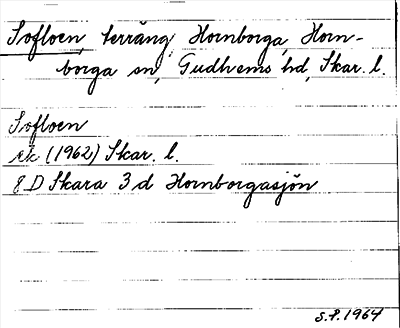 Sofloen, terräng, Hornborga, Horn-
borga sn, Gudhems hd, Skar. l.
Sofloen
ek (1962) Skar. l.
8 D Skara 3 d Hornborgasjön
S.P. 1964